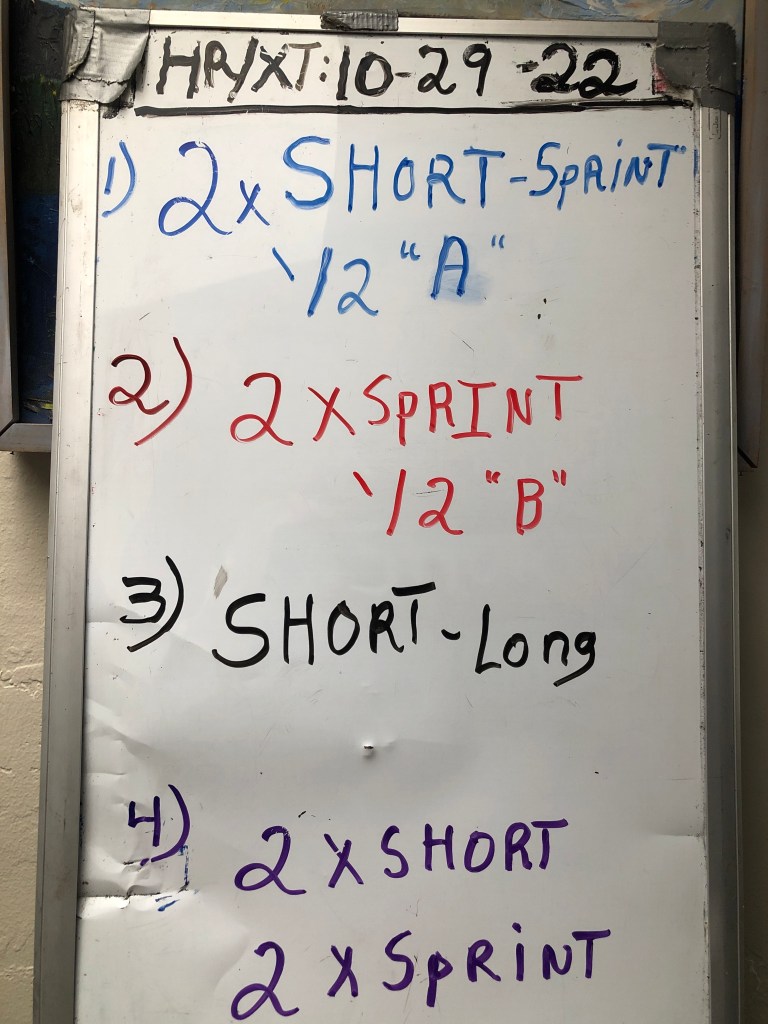 HR/XT: 10-29-22
1) 2x SHORT-SPRINT
1/2 "A"
2) 2 x SPRINT
1/2 "B"
3) SHORT-Long
4) 2 x SHORT
2 x SPRINT